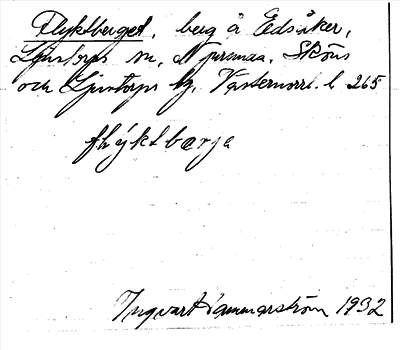 Flyktberget, berg å Edsåker,
Ljustorps sn,
och Ljustorps tg. Västernorrl. l 265
flýktbærja
Ingvar Hammarström 1932